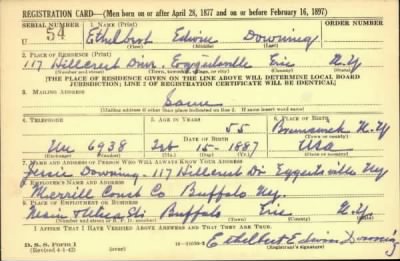 REGISTRATION CARD—(Men born on or after April 28, 1877 and on or before February 16, 1897)
SERIAL NUMBER 1. NAME (Print) ORDER NUMBER
U 54 Ethelbert Edwin Downing
(First) (Middle) (Last)
2. PLACE OF RESIDENCE (Print)
117 Hillcrest Drive Eggertsville Erie N.Y
(Number and street) (Town, township, village, or city) (County) (State)
[THE PLACE OF RESIDENCE GIVEN ON THE LINE ABOVE WILL DETERMINE LOCAL BOARD
JURISDICTION; LINE 2 OF REGISTRATION CERTIFICATE WILL BE IDENTICAL]
3. MAILING ADDRESS
Same
[Mailing address if other than place indicated on line 2. If same insert word same]
4. TELEPHONE 5. AGE IN YEARS 6. PLACE OF BIRTH
55 Brunswick N.Y
DATE OF BIRTH (Town or county)
6938 Feb 15- 1887 USA
(Exchange) (Number) (Mo.) (Day) (Yr.) (State or country)
7. NAME AND ADDRESS OF PERSON WHO WILL ALWAYS KNOW YOUR ADDRESS
Jessie Downing - 117 Hillcrest Dr Eggertsville Ny
8. EMPLOYER'S NAME AND ADDRESS
Merrill Const Co Buffalo Ny.
9. PLACE OF EMPLOYMENT OR BUSINESS
Sts Buffalo Erie N.Y
(Number and street or R. F. D. number) (Town) (County) (State)
I AFFIRM THAT I HAVE VERIFIED ABOVE ANSWERS AND THAT THEY ARE TRUE.
D. S. S. Form 1 Ethelbert Edwin Downing
(Revised 4-1-42) (over) (Registrant's signature)